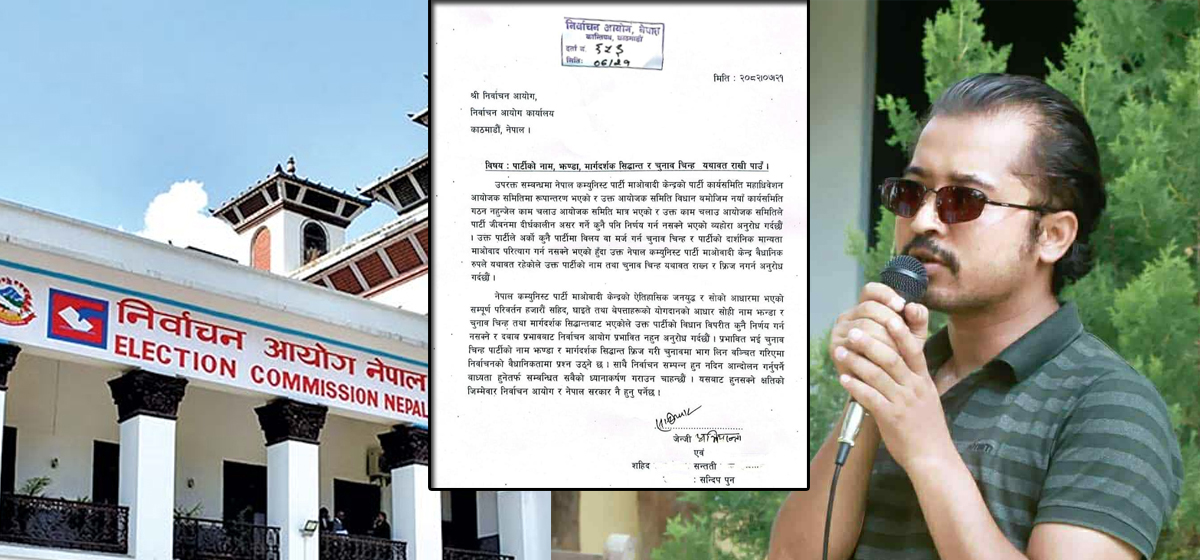 निर्वाचन आयोग नेपाल
ELECTION COMMISSION NEPAL
निर्वाचन आयोग, नेपाल
कान्तिपथ, काठमाडौं
दर्ता नं.
मिति:
मिति : २०८२।०७।२१
श्री निर्वाचन आयोग,
निर्वाचन आयोग कार्यालय
काठमाडौं, नेपाल ।
विषय : पार्टीको नाम, झण्डा, मार्गदर्शक सिद्धान्त र चुनाव चिन्ह यथावत राखी पाउँ ।
उपरक्त सम्बन्धमा नेपाल कम्युनिस्ट पार्टी माओवादी केन्द्रको पार्टी कार्यसमिति महाधिवेशन
आयोजक समितिमा रूपान्तरण भएको र उक्त आयोजक समिति विधान बमोजिम नयाँ कार्यसमिति
गठन नहुन्जेल काम चलाउ आयोजक समिति मात्र भएको र उक्त काम चलाउ आयोजक समितिले
पार्टी जीवनमा दिर्घकालीन असर गर्ने कुनै पनि निर्णय गर्न नसक्ने भएको व्यहोरा अनुरोध गर्दछौं
। उक्त पार्टीले अर्को कुनै पार्टीमा विलय वा मर्ज गर्न चुनाव चिन्ह र पार्टीको दार्शनिक मान्यता
माओवाद परित्याग गर्न नसक्ने भएको हुँदा उक्त नेपाल कम्युनिस्ट पार्टी माओवादी केन्द्र वैधानिक
रुपले यथावत रहेकोले उक्त पार्टीको नाम तथा चुनाव चिन्ह यथावत राख्न र फ्रिज नगर्न अनुरोध
गर्दछौं ।
नेपाल कम्युनिस्ट पार्टी माओवादी केन्द्रको ऐतिहासिक जनयुद्ध र सोको आधारमा भएको
सम्पूर्ण परिवर्तन हजारौं सहिद, घाइते तथा बेपत्ताहरूको योगदानको आधार सोही नाम झन्डा र
चुनाव चिन्ह तथा मार्गदर्शक सिद्धान्तबाट भएकोले उक्त पार्टीको विधान विपरीत कुनै निर्णय गर्न
नसक्ने र दबाब प्रभावबाट निर्वाचन आयोग प्रभावित नहुन अनुरोध गर्दछौं । प्रभावित भई चुनाव
चिन्ह पार्टीको नाम झण्डा र मार्गदर्शक सिद्धान्त फ्रिज गरी चुनावमा भाग लिन वञ्चित गरिएमा
निर्वाचनको वैधानिकतामा प्रश्न उठ्ने छ । साथै निर्वाचन सम्पन्न हुन नदिन आन्दोलन गर्नुपर्ने
बाध्यता हुनेतर्फ सम्बन्धित सबैको ध्यानाकर्षण गराउन चाहन्छौं । यसबाट हुनसक्ने क्षतिको
जिम्मेवार निर्वाचन आयोग र नेपाल सरकार नै हुनु पर्नेछ ।
जेन्जी
एवं
शहिद सन्तती
: सन्दिप पुन